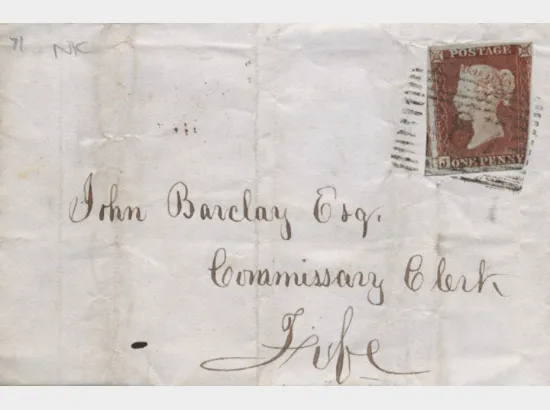 71 NK
POSTAGE
ONE PENNY
John Barclay Esq.
Commissary Clerk
Fife